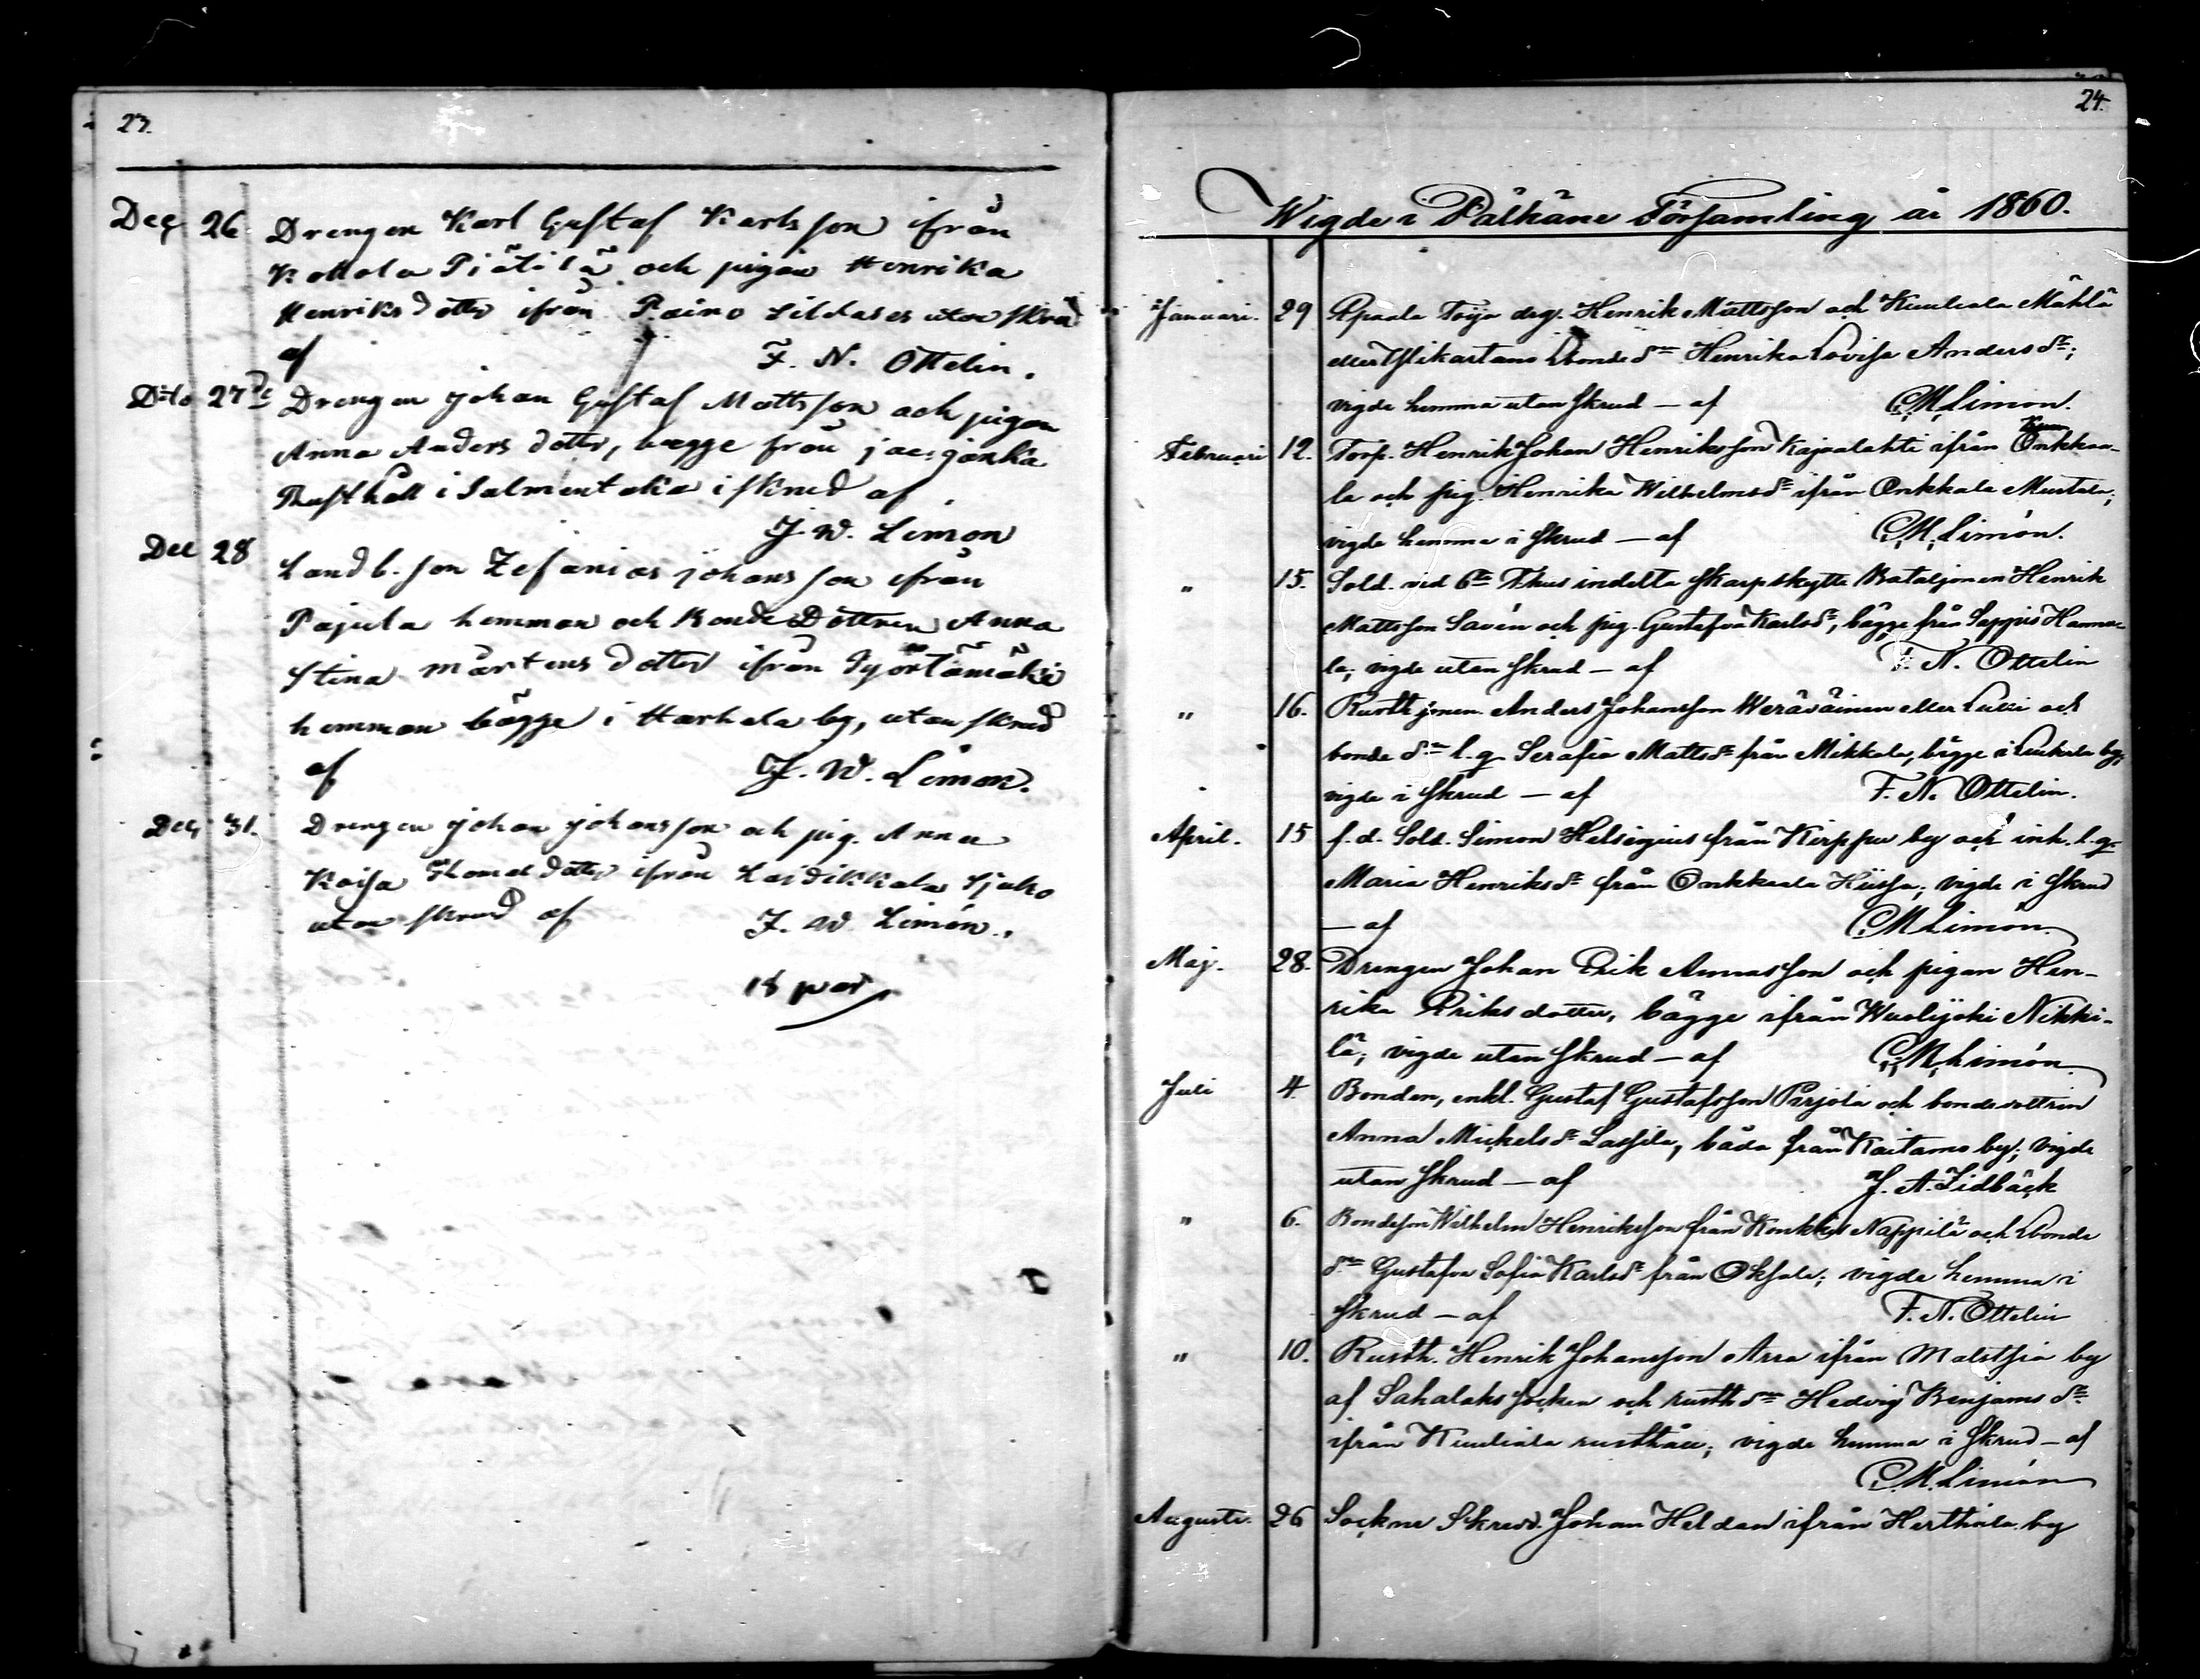 23.
Dec 26 Drengen Karl Gustaf Karlsson ifrån
Kollola Piätilä och pigan Henrika
Henriks dotter ifrån Paino utan skrud
af F. N. Ottelin.
Dito 27de Drengen Johan Gustaf Mattsson och pigan
Anna Anders dotter, bægge från
Rusthåll i Salmentaka i skrud af
J. W. Limon
Dec 28 Landb. son Zefanias Johansson ifrån
Pajula hemman och Bonde Dottren Anna
Stina Mårtens dotter ifrån
hemman bägge i Harhala by, utan skrud
af J. W. Limon.
Dec 31. Drengen Johan Johansson och pig. Anna
Kaisa Thomas dotter ifrån Laidikkala Sjuko
utan skrud af J. W. Limón.
18 par
24.
Wigde i Pälkäne Församling år 1860.
Januari. 29 Epaala Toijo drg. Henrik Mattsson och Kuuliala Mähkä
eller Ylikartano bonde dn Henrika Lovisa Anders dr;
vigde hemma utan skrud — af C. M. Limón.
Februari 12. Torp. Henrik Johan Henriksson Kajvalahti ifrån Onkkaa-
la och pig. Henrika Wilhelms dr ifrån Onkkala Mustala;
vigde hemma i skrud — af C. M. Limón.
" 15. Sold. vid 6te Thus indelta Skarpskytte Bataljonen Henrik
Mattsson Savén och pig. Gustafva Karls dr, bägge från Sappis Hanna-
la; vigde utan skrud — af F. N. Ottelin
" 16. Rusth. Anders Johansson Weräväinen eller och
bonde dn l. q. Serafia Matts dr från Mikkola, bägge i Luikala by;
vigde i skrud — af F. N. Ottelin.
April. 15 f. d. Sold. Simon Helsigius från Kirppu by och inh. l. q.
Maria Henriks dr från Onkkaala Hiissa; vigde i skrud
— af C. M. Limón.
Maj. 28. Drengen Johan Erik Annasson och pigan Hen-
rika Eriks dotter, bägge ifrån Wuolijoki Nikki-
lä; vigde utan skrud — af C. M. Limón.
Juli 4. Bonden, enkl. Gustaf Gustafsson Pärjölä och bonde dottren
Anna Mickels dr Lassila, båda från Kaitamo by; vigde
utan skrud — af J. A. Lidbäck
" 6. Bondeson Wilhelm Henriksson från Nappilä och bonde
dn Gustafva Sofia Karls dr från Oksala; vigde hemma i
skrud — af F. N. Ottelin
" 10. Rusth. Henrik Johansson Arra ifrån by
af Sahalaks socken och rusth dn Hedvig Benjams dr
ifrån Kuuliala rusthåll; vigde hemma i skrud — af
C. M. Limón
Augusti. 26 Sockne Skredd. Johan Heldan ifrån Herttuala by